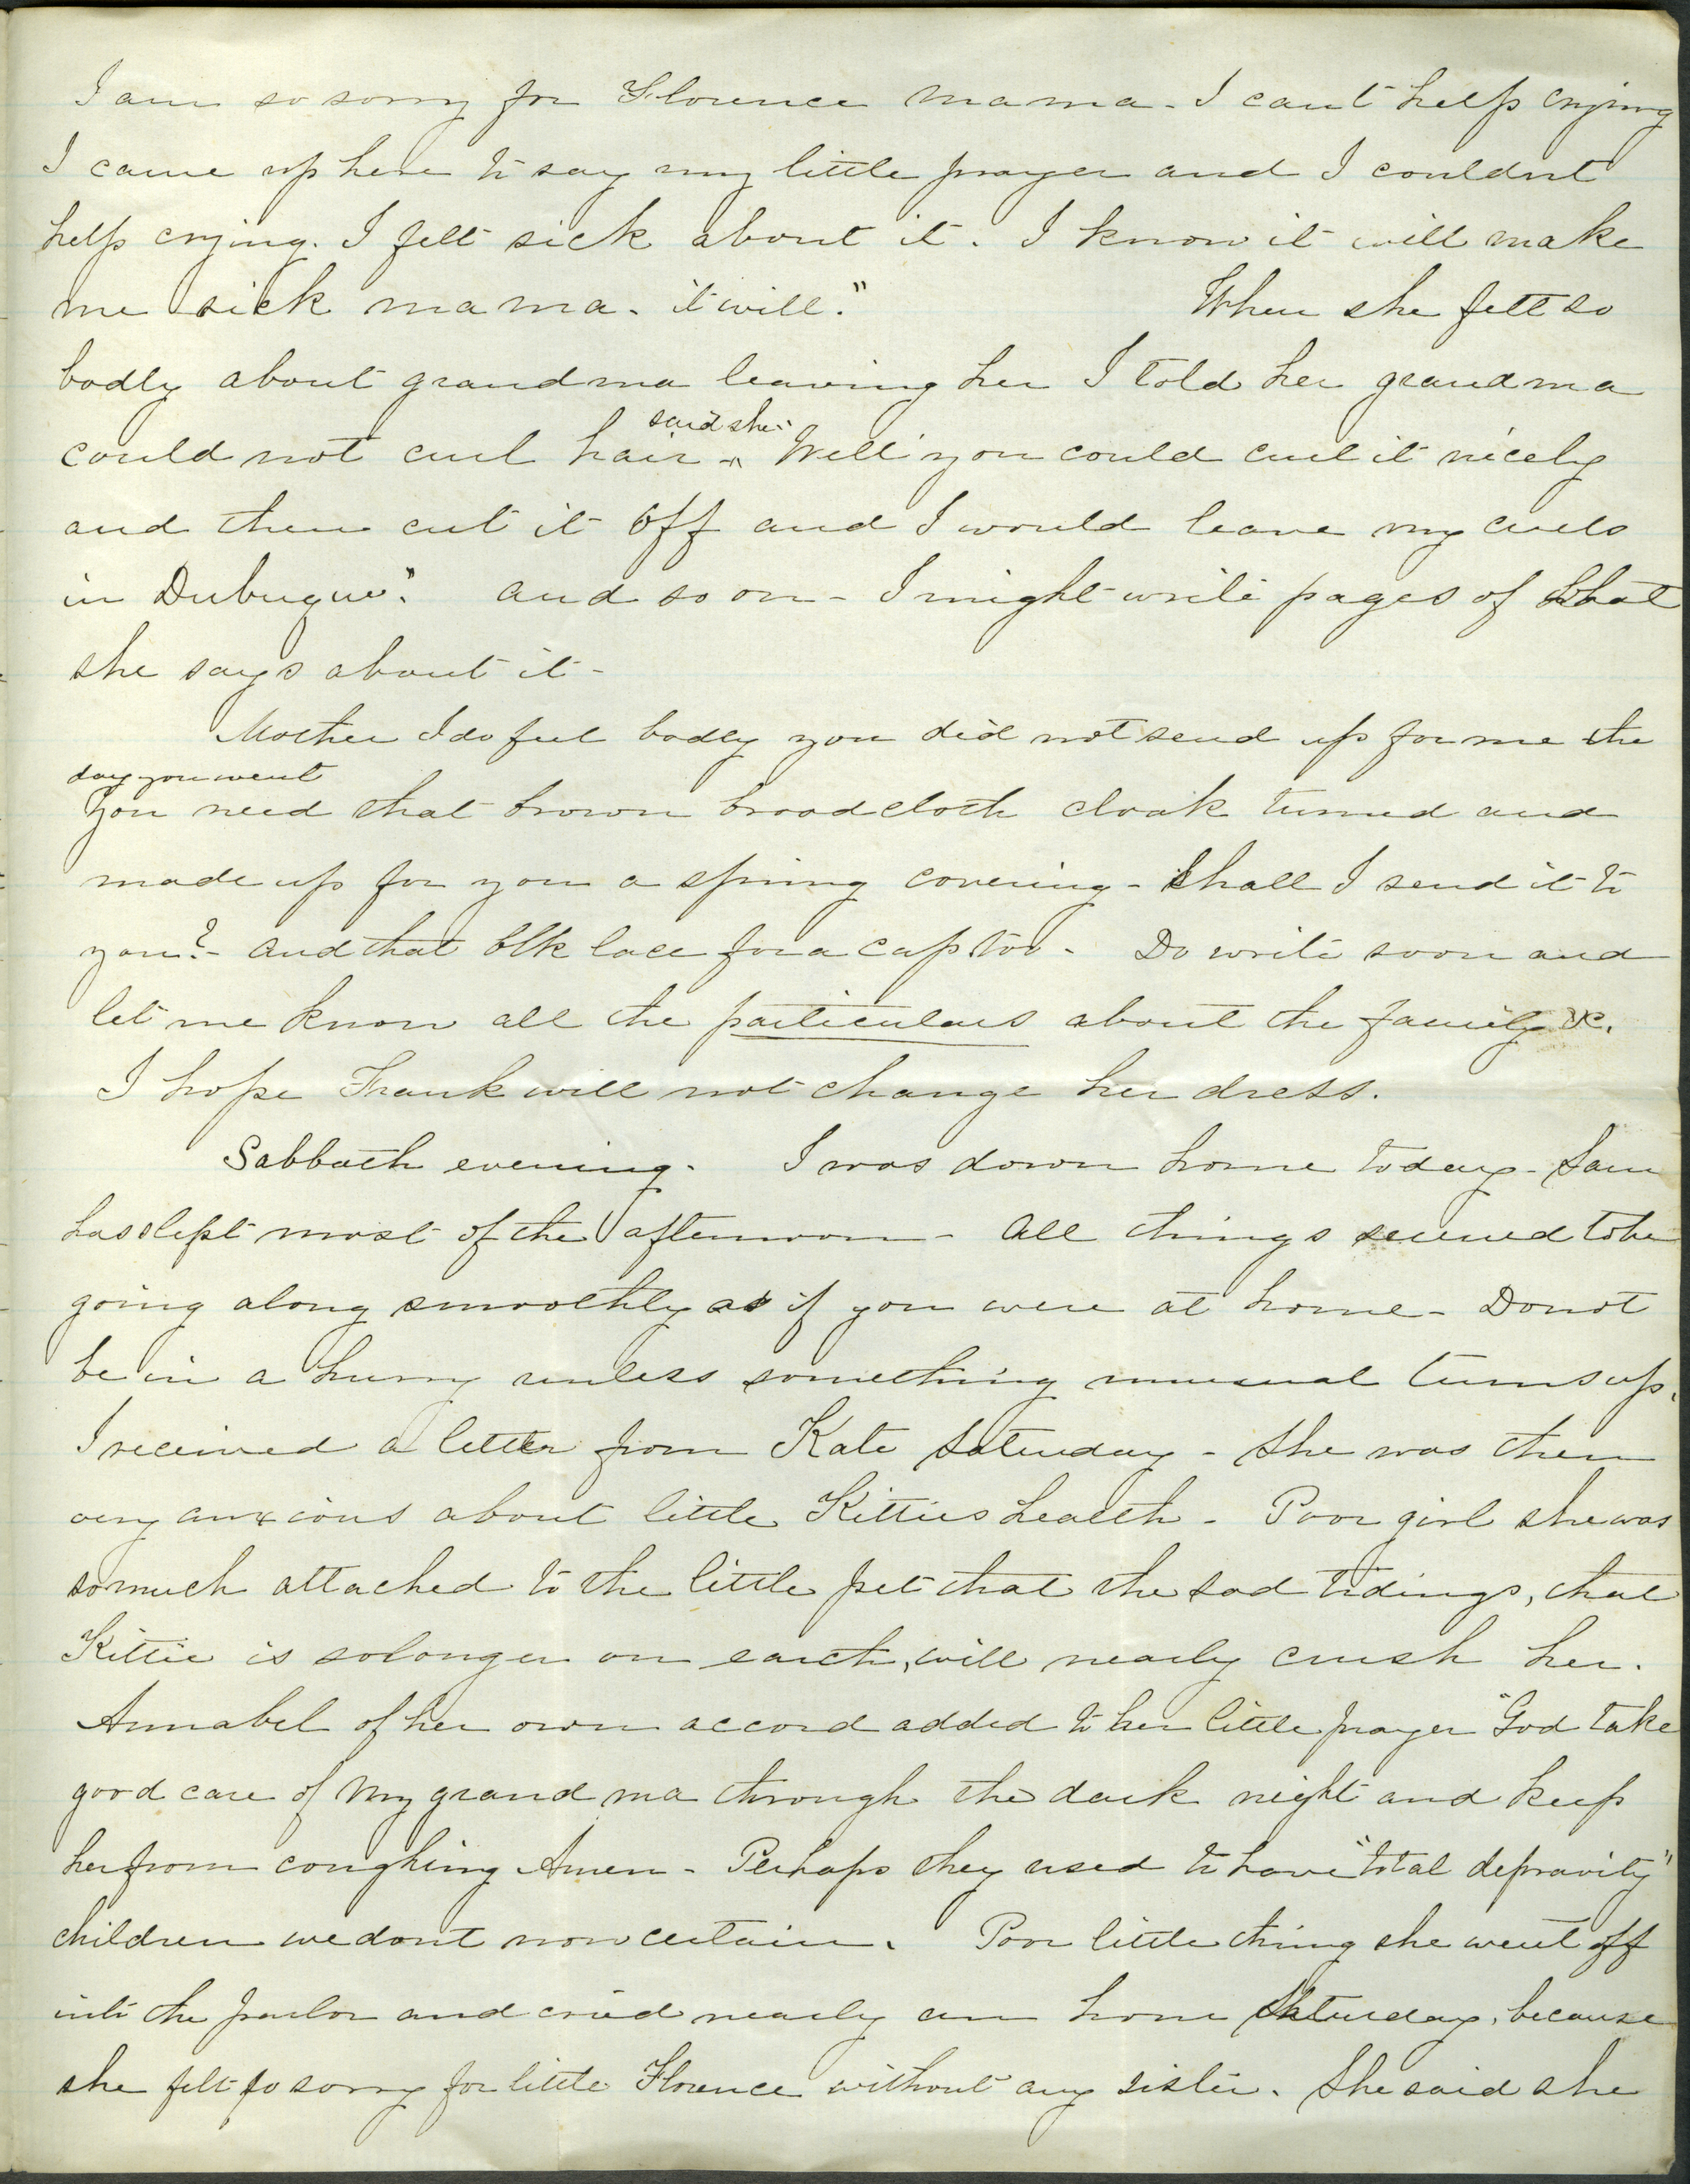 I am so sorry for Florence mama - I cant help crying
I came up here to say my little prayer and I couldnt
help crying. I felt sick about it. I know it will make
me sick mama. it will." When she felt so
badly about grandma leaving her I told her grandma
could not curl hair - ^ said she "Well you could curl it nicely
and then cut it off and I would leave my curls
in Dubuque". and so on - I might write pages of what
she says about it -
Mother I do feel badly you did not send up for me the
day you went
You need that brown broadcloth cloak turned and
made up for you a spring covering - Shall I send it to
you? - and that blk lace for a cap too - Do write soon and
let me know all the particulars about the family &c.
I hope Frank will not change her dress.
Sabbath evening. I was down home today - Sam
has slept most of the afternoon - All things seemed to be
going along smoothly as if you were at home - Do not
be in a hurry unless something unusual turns up.
I received a letter from Kate Saturday - She was then
very anxious about little Kitties health - Poor girl she was
so much attached to the little pet that the sad tidings, that
Kittie is nolonger on earth, will nearly crush her.
Annabel of her own accord added to her little prayer "God take
good care of my grand ma through the dark night and keep
her from coughing Amen - Perhaps they used to have "total depravity"
children we dont now certain. Poor little thing she went off
into the parlor and cried nearly an hour Saturday, because
she felt so sorry for little Florence without any sister. She said she